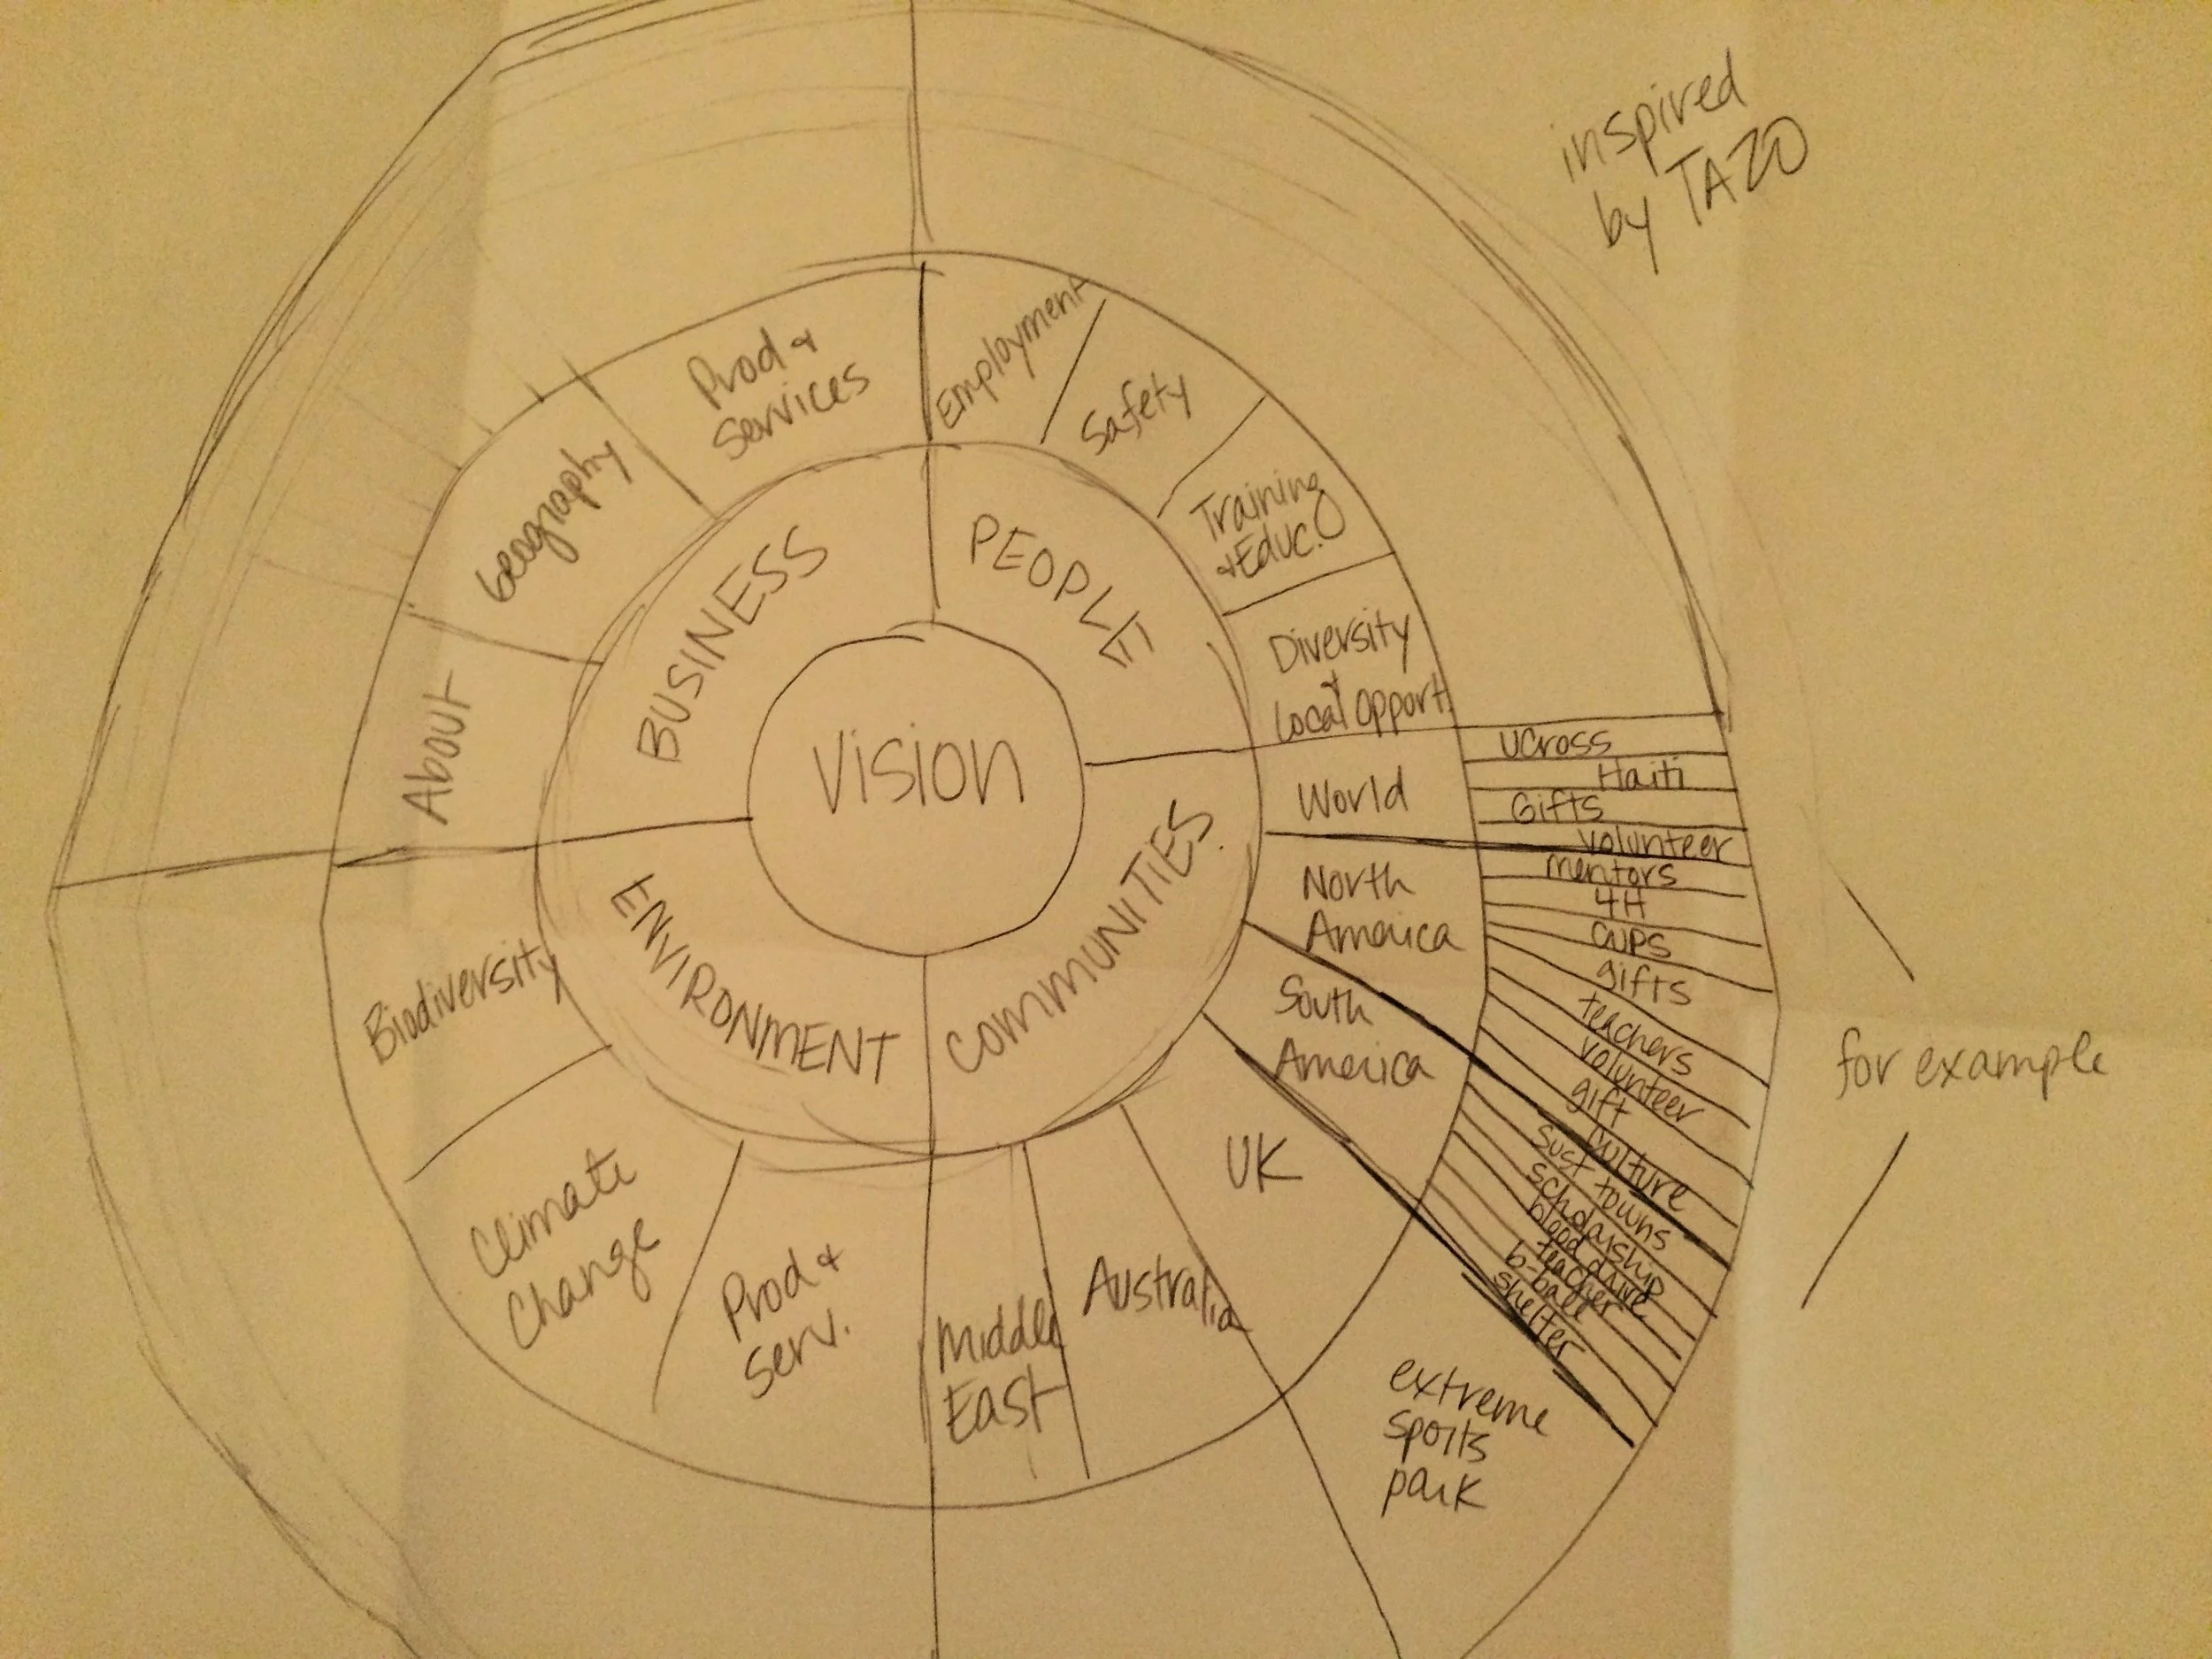 inspired
by TAZO
Vision
BUSINESS
PEOPLE
COMMUNITIES
ENVIRONMENT
About
Geography
Prod +
Services
Employment
Safety
Training
+ Educ.
Diversity
+
Local Opport.
World
North
America
South
America
UK
Australia
Middle
East
Prod +
Serv.
Climate
Change
Biodiversity
UCross
Haiti
Gifts
Volunteer
mentors
4H
cups
gifts
teachers
volunteer
gift
culture
sust towns
scholarship
blood drive
teacher
b-ball
shelter
extreme
sports
park
for example